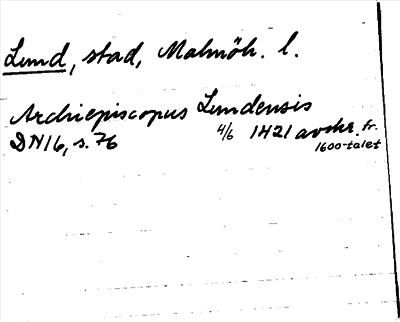 Lund, stad, Malmöh. l.
Archiepiscopus Lundensis
DN16, s. 76 4/6 1421 avskr. fr.
1600-talet